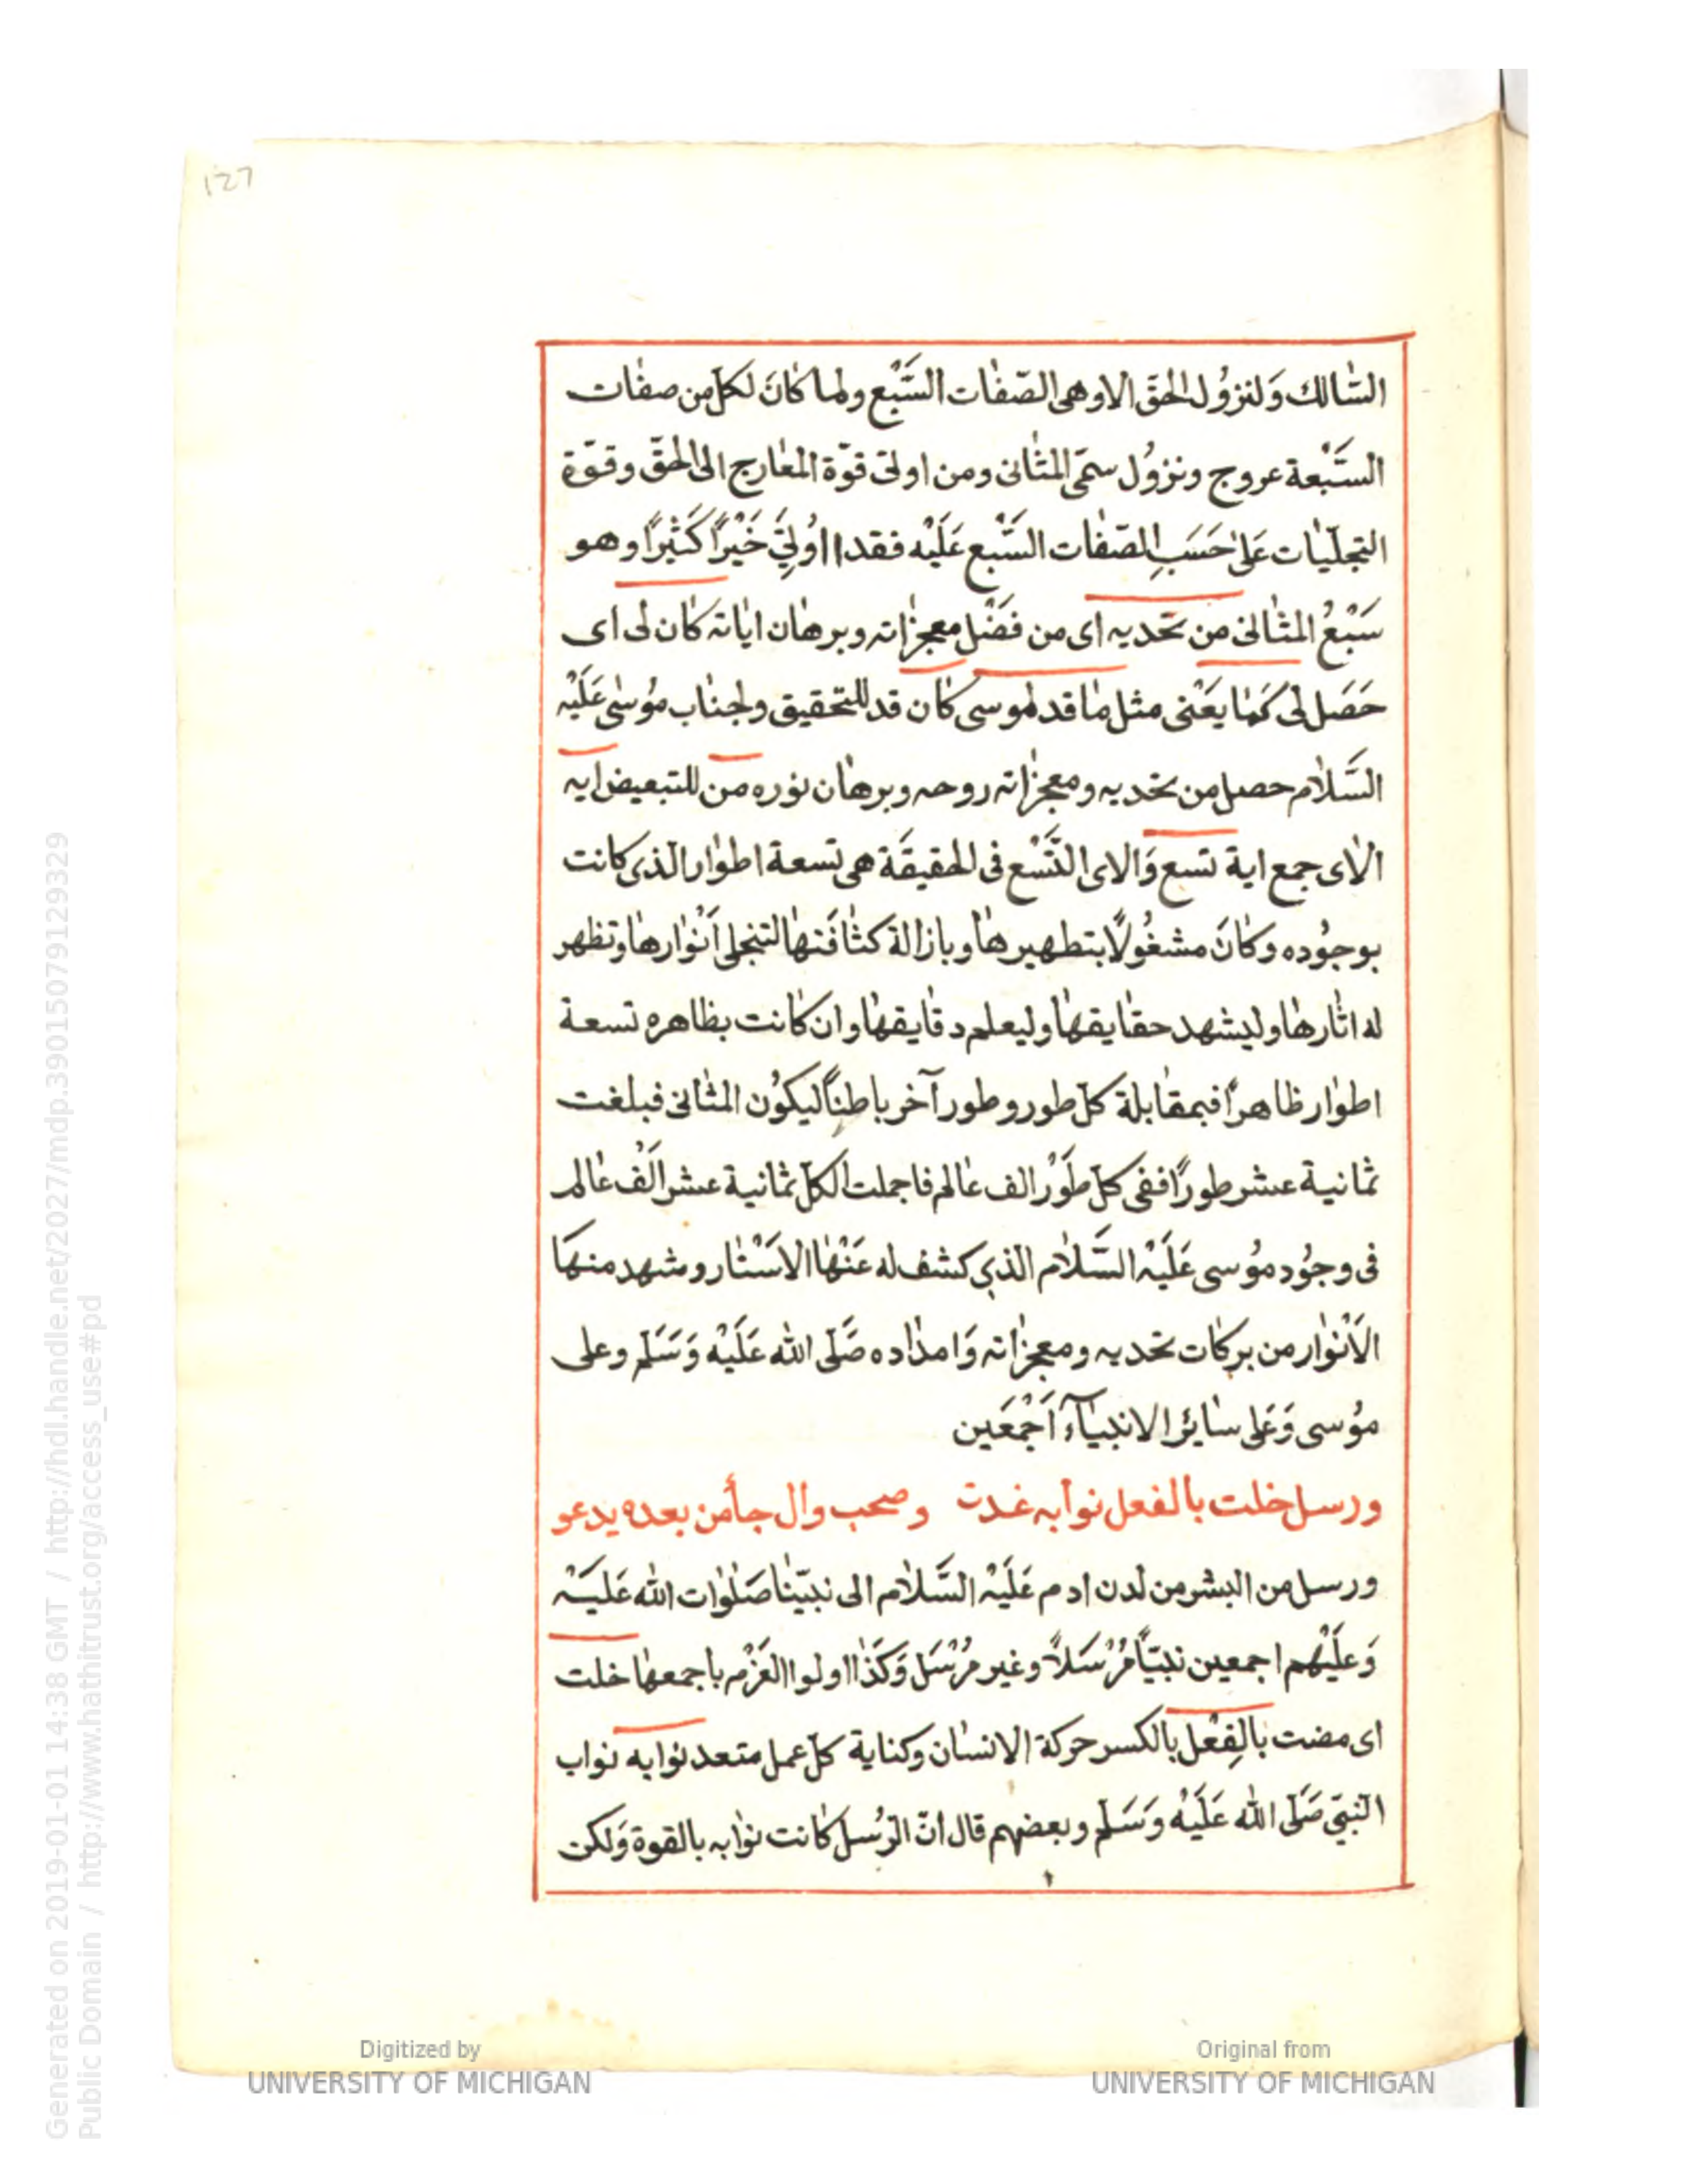 127
السّالك وَلنزوُل الحقّ الا وهى الصّفات السَّبْع ولما كانَ لكلّ من صفات
السَّبْعة عروج ونزوُل سمّى المثانى ومن اولى قوّة المعارج الى الحق وقوّة
التجلّيات عَلى حَسَبِ الصّفات السَّبْع عَلَيْه فقد اوُلِىَ خَيْراً كَثيْراً وهو
سَبْعُ المثانى من تحديه اى من فَضْل معجزاته وبرهان اياته كان لى اى
حَصَل لى كَمَا يَعْنى مثل ما قد لموسى كان قد للتحقيق ولجناب موُسى عَلَيْه
السَّلام حصل من تحديه ومعجزاته روحه وبرهان نوره من للتبعيض ايه
الاى جمع اية تسع وَالاى التَّسْع فى الحقيقَة هى تسعة اطوار الذى كانت
بوجوُده وكانَ مشغوُلاً بتطهيرها وبازالة كثافَتها لتنجلى اَنْوارها وتظهر
له اثارها وليشهد حقايقها وليعلم دقايقها وان كانت بظاهره تسعة
اطوار ظاهراً فبمقابلة كلّ طور وطور آخر باطناً ليكوُن المثانى فبلغت
ثمانية عشر طوراً ففى كلّ طَوْر الف عالم فاجملت الكلّ ثمانية عشر الَف عالم
فى وجوُد موُسى عَلَيْه السَّلام الذي كشف له عَنْها الاسْتار وشهد منهَا
الاَنْوار من بركات تحديه ومعجزاته وَامداده صَلّى الله عَلَيْه وَسَلّم وعلى
موُسى وَعَلى سايْر الانبيآء اَجْمَعَين
ورسل خلت بالفعل نوابه غدت وصحب وال جأمن بعده يدعو
ورسل من البشر من لدن ادم عَلَيْه السَّلام الى نبيّنا صَلوات الله عَليَه
وَعَلَيْهم اجمعين نبيّاً مُرْسَلاً وغير مُرْسَل وَكَذا اولوا العَزْم باجمعها خلت
اى مضت بالِفعْل بالكسر حركة الانسان وكناية كلّ عمل متعد نوابه نواب
النبىّ صَلّى الله عَلَيْه وَسَلّم وبعضهم قال انّ الرّسُل كانت نوابه بالقوة وَلكن
Generated on 2019-01-01 14:38 GMT / http://hdl.handle.net/2027/mdp.39015079129329
Public Domain / http://www.hathitrust.org/access_use#pd
Digitized by
UNIVERSITY OF MICHIGAN
Original from
UNIVERSITY OF MICHIGAN